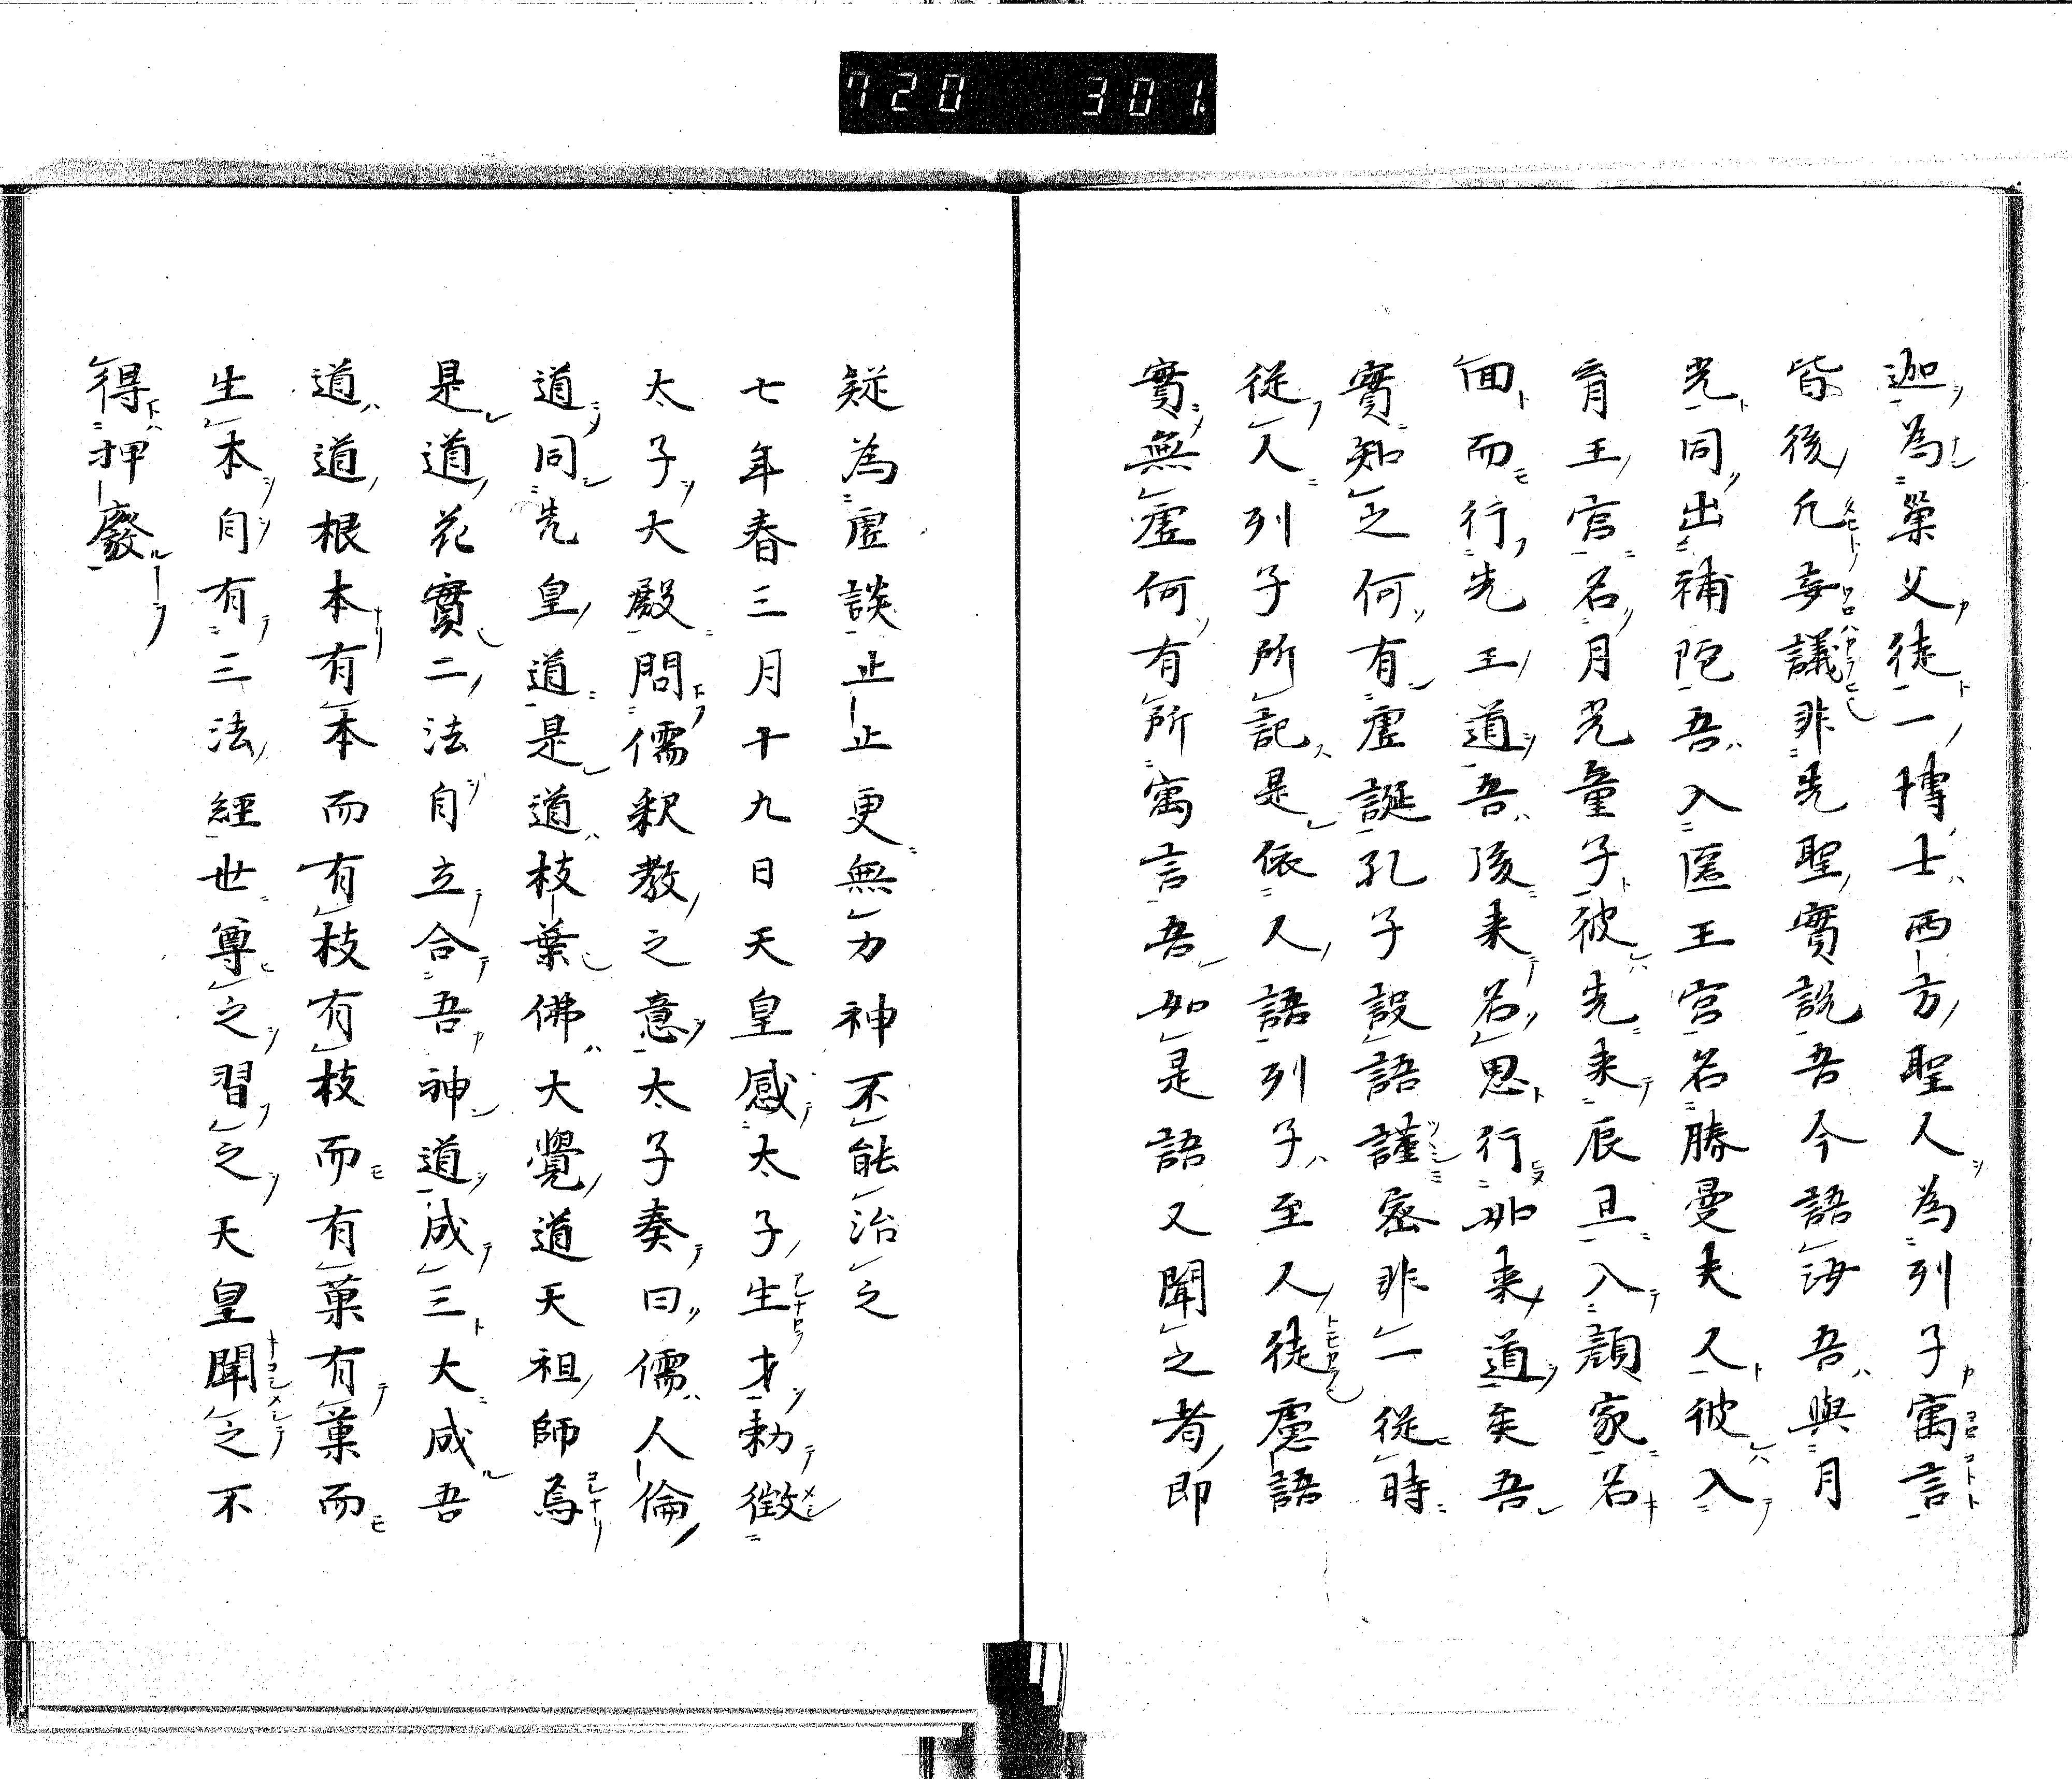 720 301.
迦為巣父徒一博士西方聖人為列子寓言
皆後凡妄議非先聖實説吾今語汝吾與月
光同出補陀吾入匿王宮名勝曼夫人彼入
育王宮名月光童子彼先来辰旦入顔家名
回而行先王道吾後来名思行如来道矣吾
實知之何有虚誕孔子設語謹密非一従時
従人列子所記是依人語列子至人徒慮語
實無虚何有所寓言吾如是語又聞之者即
疑為虚談止止更無力神不能治之
七年春三月十九日天皇感太子生才勅徴
太子大殿問儒釈教之意太子奏曰儒人倫
道同先皇道是道枝葉佛大覺道天祖師焉
是道花實二法自立合吾神道成三大成吾
道道根本有本而有枝有枝而有菓有菓而
生本自有三法經世尊之習之天皇聞之不
得押廢